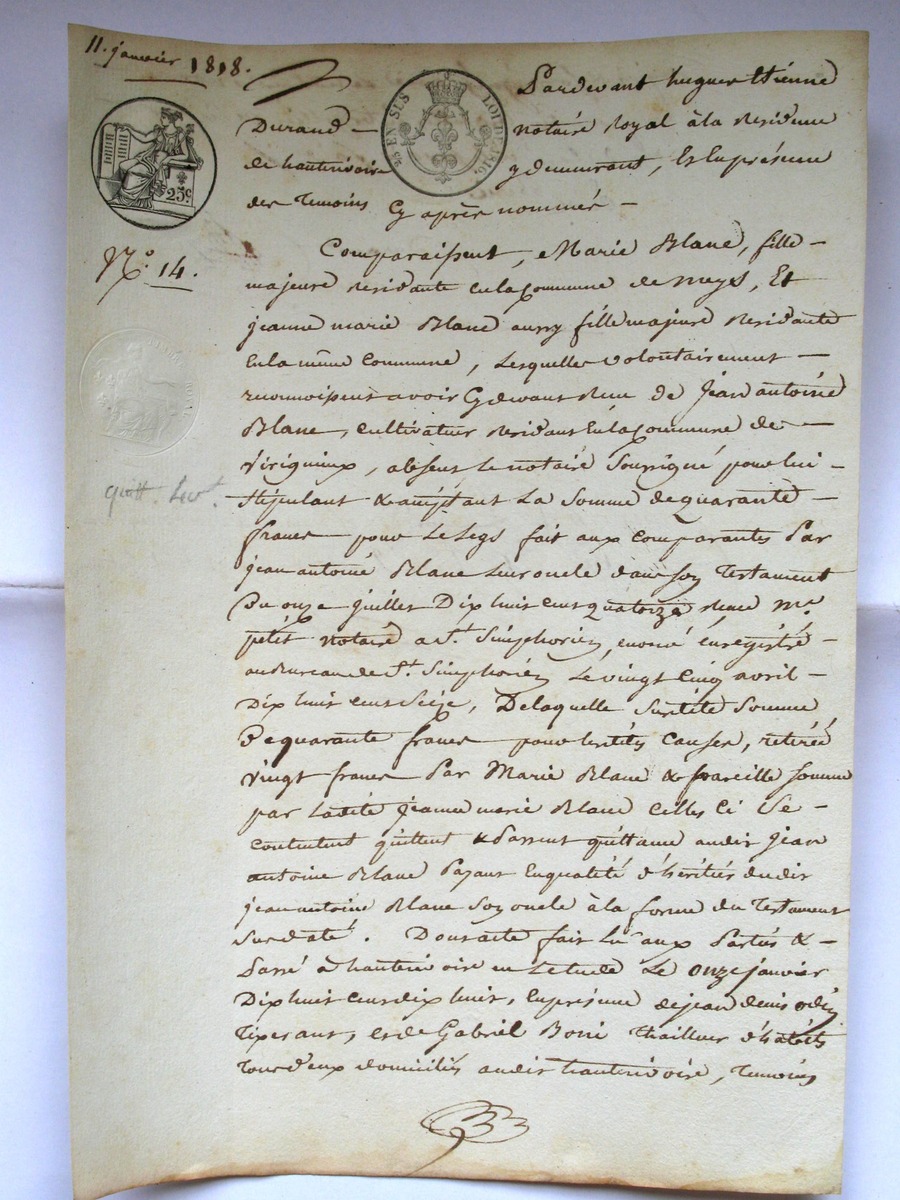 11. janvier 1818.
Pardevant hugues Etienne
Durand notaire Royal à la Residence
de hauterivoire y demeurant, Et En présence
des Temoins Cy après nommés
25 EN SUS
LOI DE 1816.
25c.
No. 14.
Comparaissent, Marie Blanc, fille
majeure Residante en la Commune de meys, Et
jeanne marie Blanc aussy fille majeure Residante
En la même Commune, Lesquelles volontairement
reconnoissent avoir Cy devant Receu De Jean antoine
Blanc, Cultivateur Residant En la Commune de
Virigneux, absent Le notaire Soussigné pour lui
Stipulant & acceptant La Somme de quarante
quitt. Leg.
francs pour Le Legs fait aux Comparantes Par
jean antoine Blanc Leur oncle dans son Testament
Du onze juillet Dix huit cent quatorze Receu Me.
petit notaire a St. Simphorien, enoncé enregistré
au Bureau de St. Simphorien Le vingt Cinq avril
Dix huit cent Seize, De laquelle Susdite Somme
De quarante francs pour Lesdites Causes, retirée
Vingt francs Par Marie Blanc & pareille Somme
par Ladite jeanne marie Blanc Celles Ci Se
contentent quittent & Passent quittance audit jean
antoine Blanc Payant En qualité d'héritier dudit
jean antoine Blanc Son oncle à la forme du Testament
Susdaté. Dont acte fait Lu aux Parties &
Passé à hauterivoire en L'etude Le onze janvier
Dix huit cent dix huit, En présence de jean denis odin
Tixerant, et de Gabriel Boni Thailleur d'habits
Tous deux domiciliés audit hauterivoire, Temoins